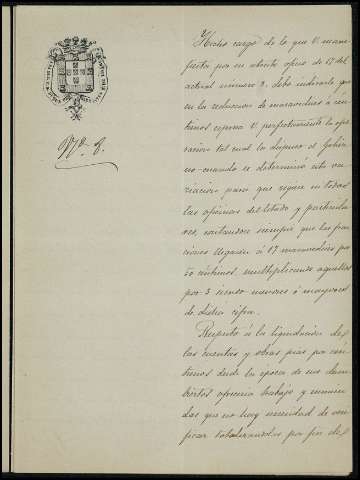 Nº 8.
Hecho cargo de lo que V. mani-
fiesta por su atento oficio de 17 del
actual número 8, debo indicarle que
en la reduccion de maravedises á cén-
timos expresa V. perfectamente la ope-
racion tal cual la dispuso el Gobier-
no cuando se determinó esta va-
riacion para que rigiese en todas
las oficinas del Estado y particula-
res, contandose siempre que las frac-
ciones llegasen á 17 maravedises por
50 céntimos, multiplicando aquellos
por 3 siendo menores ó mayores
de dicha cifra.
Respecto á la liquidacion de
las cuentas y obras pias por cén-
timos desde la época de sus
ofreceria trabajo y
que no hay necesidad de veri-
ficar totalizandolas por fin de